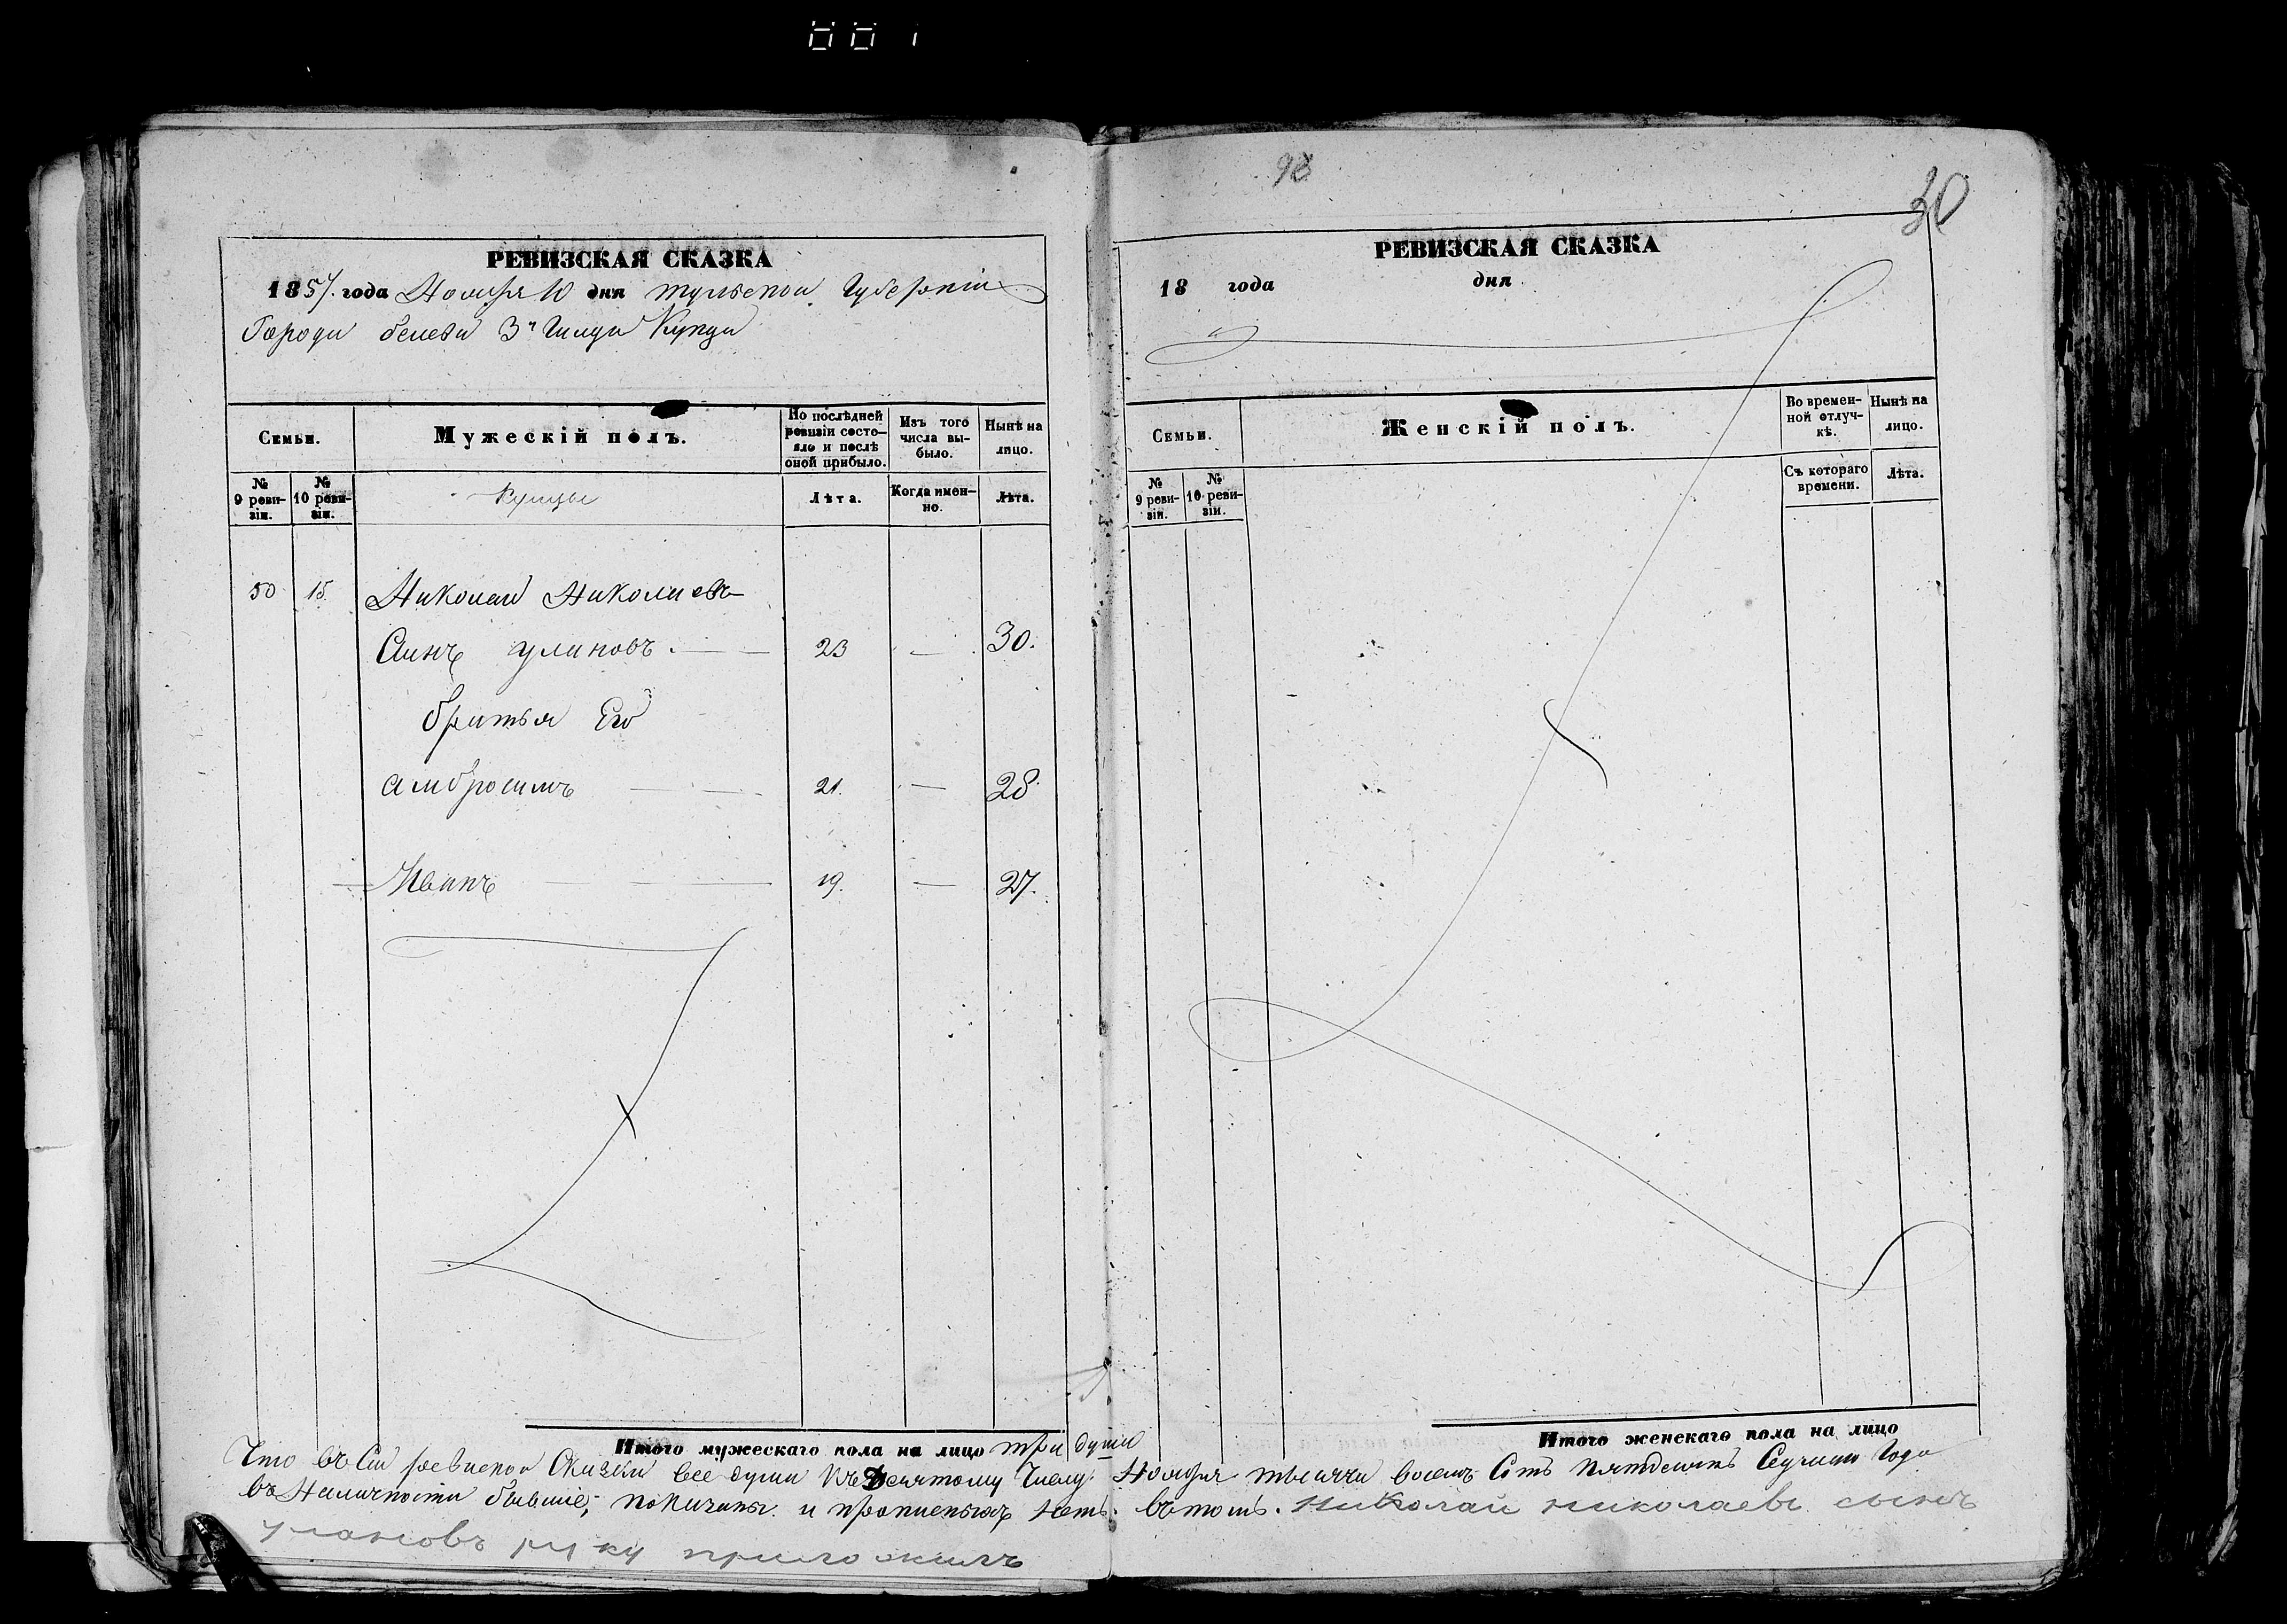 001
98
30
РЕВИЗСКАЯ СКАЗКА
1857. года Ноября 10 дня Тульской Губерніи
Города белева 3й Гилди Купца
Семьи.
Мужескій полъ.
По послѣдней ревизіи состояло и послѣ оной прибыло.
Изъ того числа выбыло.
Нынѣ на лицо.
№ 9 ревизіи.
№ 10 ревизіи.
Купцы
Лѣта.
Когда именно.
Лѣта.
50 15. Николай Николаевъ
Сынъ улановъ. — 23 — 30.
братья Его
амбросимъ — 21. — 28.
Иванъ — 19. — 27.
Итого мужескаго пола на лицо три души
РЕВИЗСКАЯ СКАЗКА
18 года дня
Семьи.
Женскій полъ.
Во временной отлучкѣ.
Нынѣ на лицо.
№ 9 ревизіи.
№ 10 ревизіи.
Съ котораго времени.
Лѣта.
Итого женскаго пола на лицо
Что въ Сей ревиской Сказки все души Къ Десятому Числу Ноября тысяча восемь Сотъ пятдесятъ Седьмаго Года
въ Наличности бывшіе, показаны и прописныхъ нетъ. въ томъ. николай николаевъ сынъ
улановъ руку приложилъ